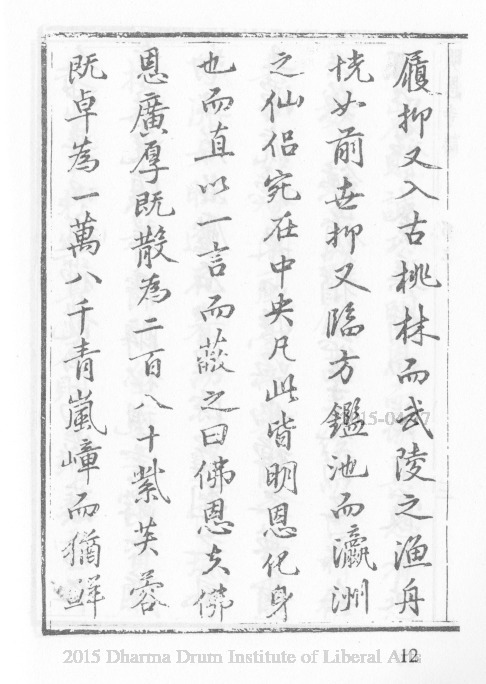 履抑又入古桃林而武陵之漁舟
恍如前世抑又臨方鑑池而瀛洲
之仙侶宛在中央凡此皆明恩化身
也而直以一言而蔽之曰佛恩夫佛
恩廣厚既散為二百八十紫芙蓉
既卓為一萬八千青嵐嶂而猶鮮
2015 Dharma Drum Institute of Liberal Arts
12